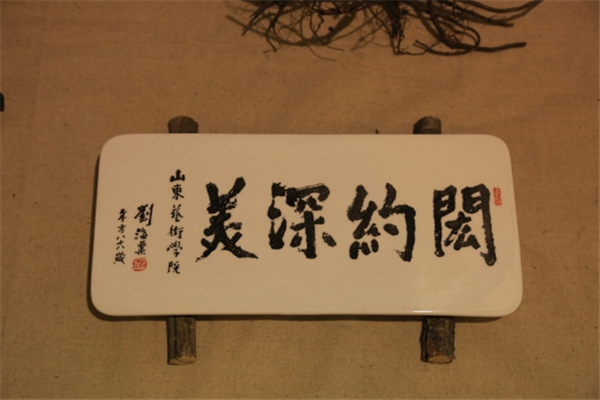 閎約深美
山東藝術學院
劉海粟
年方八六歲